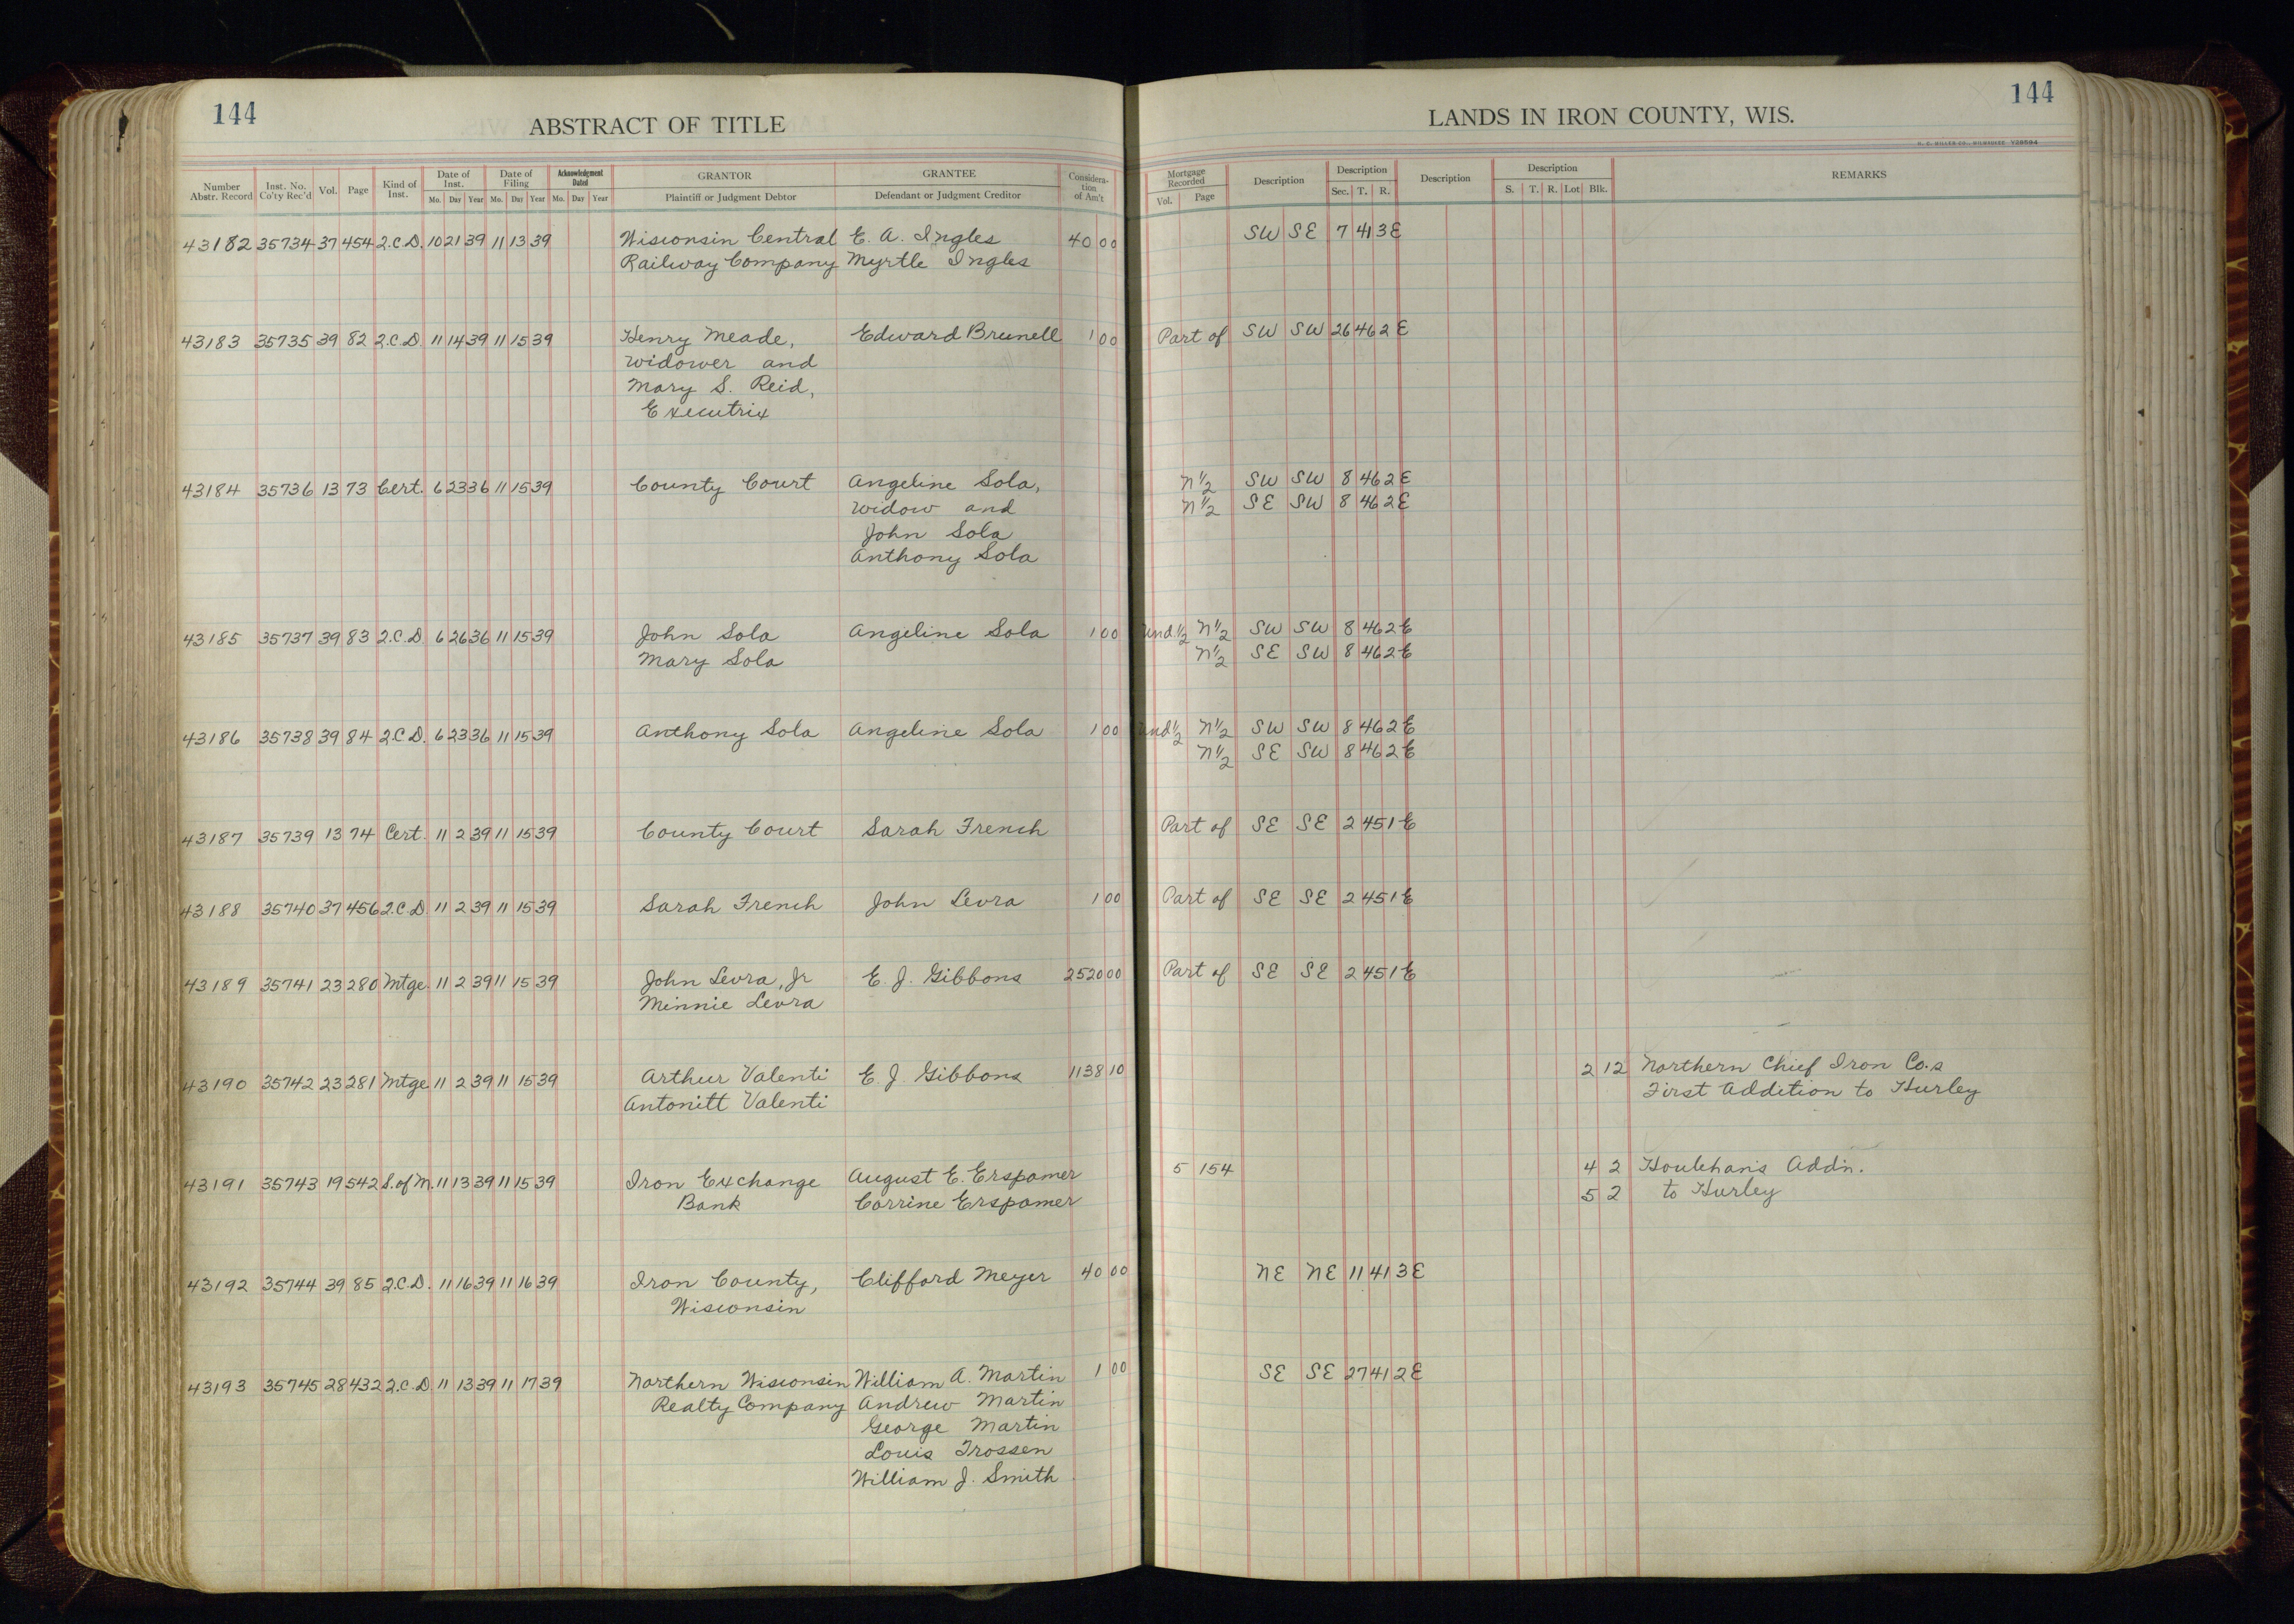 144
ABSTRACT OF TITLE
Number Abstr. Record Inst. No. Co'ty Rec'd Vol. Page Kind of Inst. Date of Inst. Mo. Day Year Date of Filing Mo. Day Year Acknowledgment Dated Mo. Day Year GRANTOR Plaintiff or Judgment Debtor GRANTEE Defendant or Judgment Creditor Consideration of Am't
43182 35734 37 454 2.C.D. 10 21 39 11 13 39 Wisconsin Central E. A. Ingles 40 00
Railway Company Myrtle Ingles
43183 35735 39 82 2.C.D. 11 14 39 11 15 39 Henry Meade, Edward Brunell 1 00
widower and
Mary S. Reid,
Executrix
43184 35736 13 73 Cert. 6 23 36 11 15 39 County Court Angeline Sola,
widow and
John Sola
Anthony Sola
43185 35737 39 83 2.C.D. 6 26 36 11 15 39 John Sola Angeline Sola 1 00
Mary Sola
43186 35738 39 84 2.C.D. 6 23 36 11 15 39 Anthony Sola Angeline Sola 1 00
43187 35739 13 74 Cert. 11 2 39 11 15 39 County Court Sarah French
43188 35740 37 456 2.C.D. 11 2 39 11 15 39 Sarah French John Levra 1 00
43189 35741 23 280 Mtge. 11 2 39 11 15 39 John Levra, Jr E. J. Gibbons 2520 00
Minnie Levra
43190 35742 23 281 Mtge 11 2 39 11 15 39 Arthur Valenti E. J. Gibbons 1138 10
Antonitt Valenti
43191 35743 19 542 S. of M. 11 13 39 11 15 39 Iron Exchange August E. Erspamer
Bank Corrine Erspamer
43192 35744 39 85 2.C.D. 11 16 39 11 16 39 Iron County, Clifford Meyer 40 00
Wisconsin
43193 35745 28 432 2.C.D. 11 13 39 11 17 39 Northern Wisconsin William A. Martin 1 00
Realty Company Andrew Martin
George Martin
Louis Trossen
William J. Smith
144
LANDS IN IRON COUNTY, WIS.
H. C. MILLER CO., MILWAUKEE V28594
Mortgage Recorded Vol. Page Description Description Sec. T. R. Description Description S. T. R. Lot Blk. REMARKS
SW SE 7 41 3E
Part of SW SW 26 46 2 E
N 1/2 SW SW 8 46 2E
N 1/2 SE SW 8 46 2E
Und. 1/2 N 1/2 SW SW 8 46 2E
N 1/2 SE SW 8 46 2E
Und 1/2 N 1/2 SW SW 8 46 2E
N 1/2 SE SW 8 46 2E
Part of SE SE 2 45 1E
Part of SE SE 2 45 1E
Part of SE SE 2 45 1E
2 12 Northern Chief Iron Co.s
First Addition to Hurley
5 154 4 2 Houlehan's Add'n.
5 2 to Hurley
NE NE 11 41 3E
SE SE 27 41 2E